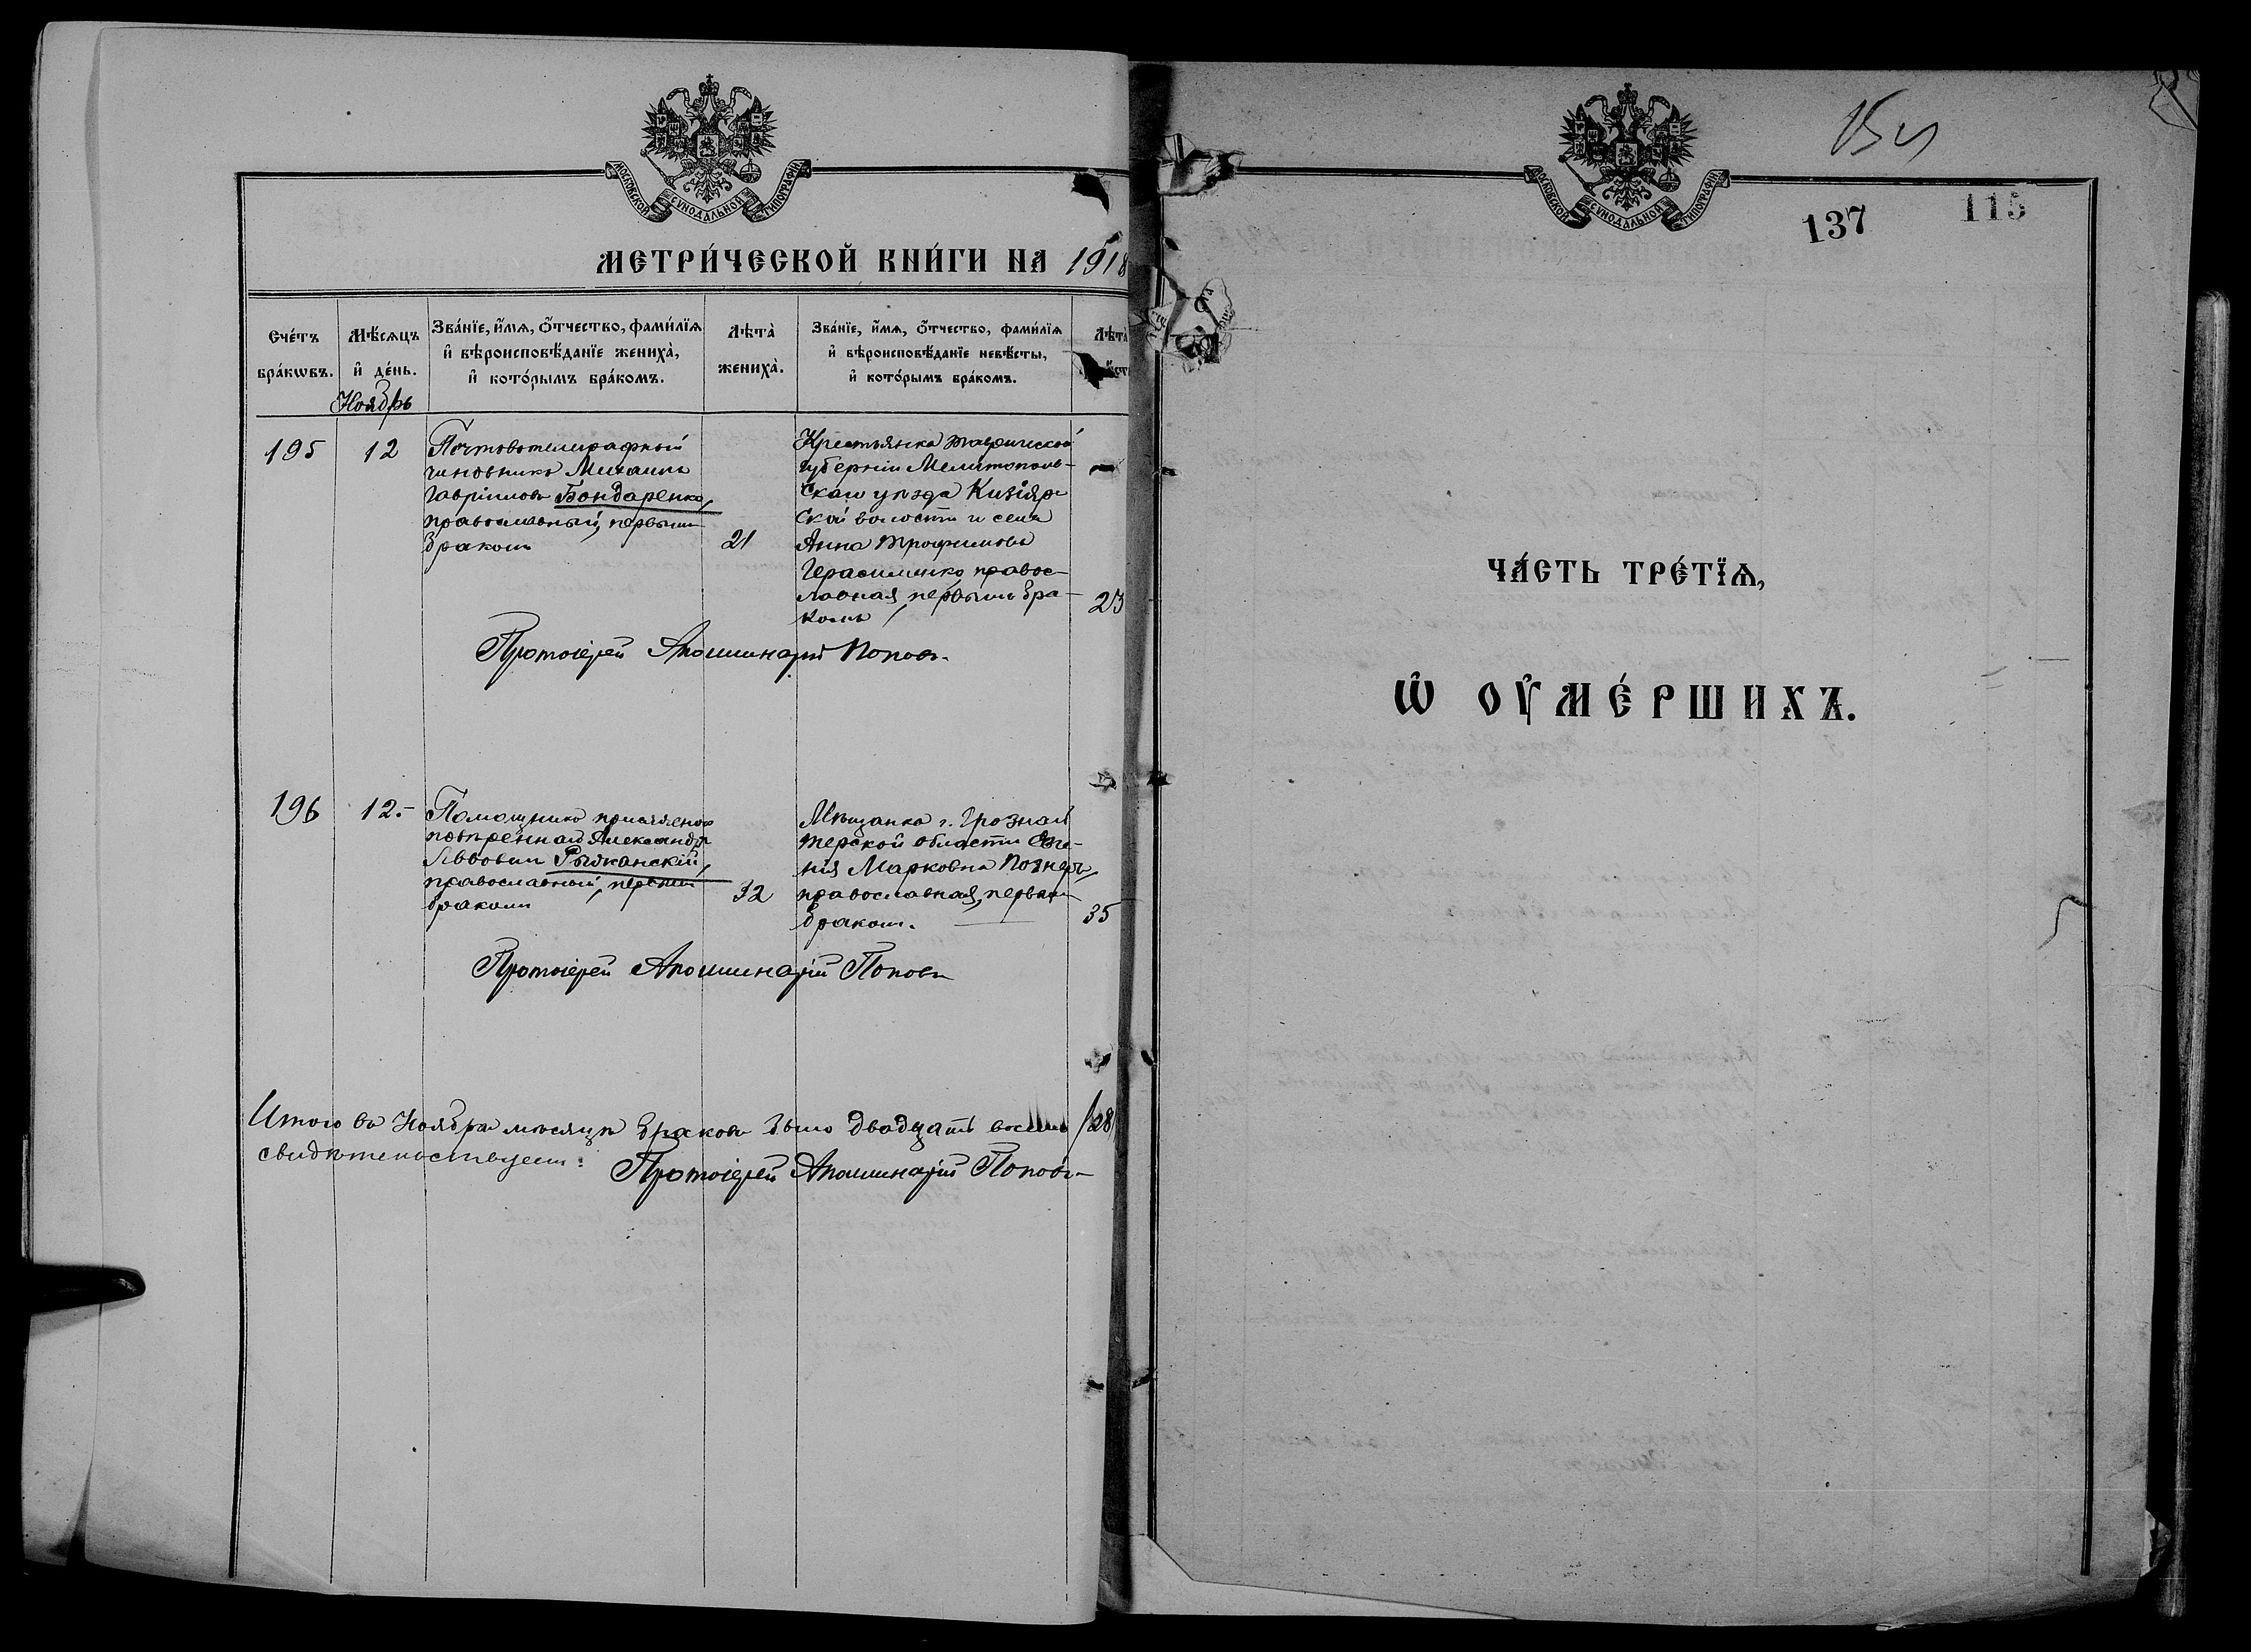 МОСКОВСКОЙ СУНОДАЛЬНОЙ ТИПОГРАФІИ
МЕТРИ́ЧЕСКОЙ КНИ́ГИ НА 1918
Счéтъ бра́кѡвъ.
Мѣ́сѧцъ и҆ де́нь.
Ноябрь
Зва́нїе, и҆́мѧ, ѻ҆́тчество, фами́лїѧ
и҆ вѣроисповѣ́данїе жениха̀,
и҆ кото́рымъ бра́комъ.
Лѣта̀ жениха̀.
Зва́нїе, и҆́мѧ, ѻ҆́тчество, фами́лїѧ
и҆ вѣроисповѣ́данїе невѣ́сты,
и҆ кото́рымъ бра́комъ.
Лѣта̀
195
12
Почтовотелеграфный
чиновникъ Михаилъ
Гавріиловъ Бондаренко,
православный, первымъ
бракомъ
21
Крестьянка Таврической
губерніи Мелитополь-
скаго уѣзда Кизіяр-
ской волости и села
Анна Трофимова
Герасименко, правос-
лавная, первымъ бра-
комъ
23
Протоіерей Аполлинарій Поповъ.
196
12.-
Помощникъ присяжнаго
повѣреннаго Александръ
Львовичъ Рыжанскій,
православный, первымъ
бракомъ
32
Мѣщанка г. Грозный
Терской области Евге-
нія Марковна Познеръ,
православная, первымъ
бракомъ.
35
Протоіерей Аполлинарій Поповъ
Итого въ Ноябрѣ мѣсяцѣ браковъ было двадцать восемь /28/
свидѣтельствуетъ:
Протоіерей Аполлинарій Поповъ
МОСКОВСКОЙ СУНОДАЛЬНОЙ ТИПОГРАФІИ
137
115
ЧА́СТЬ ТРЕ́ТЇѦ,
Ѡ҆ ОУ҆МЕ́РШИХЪ.